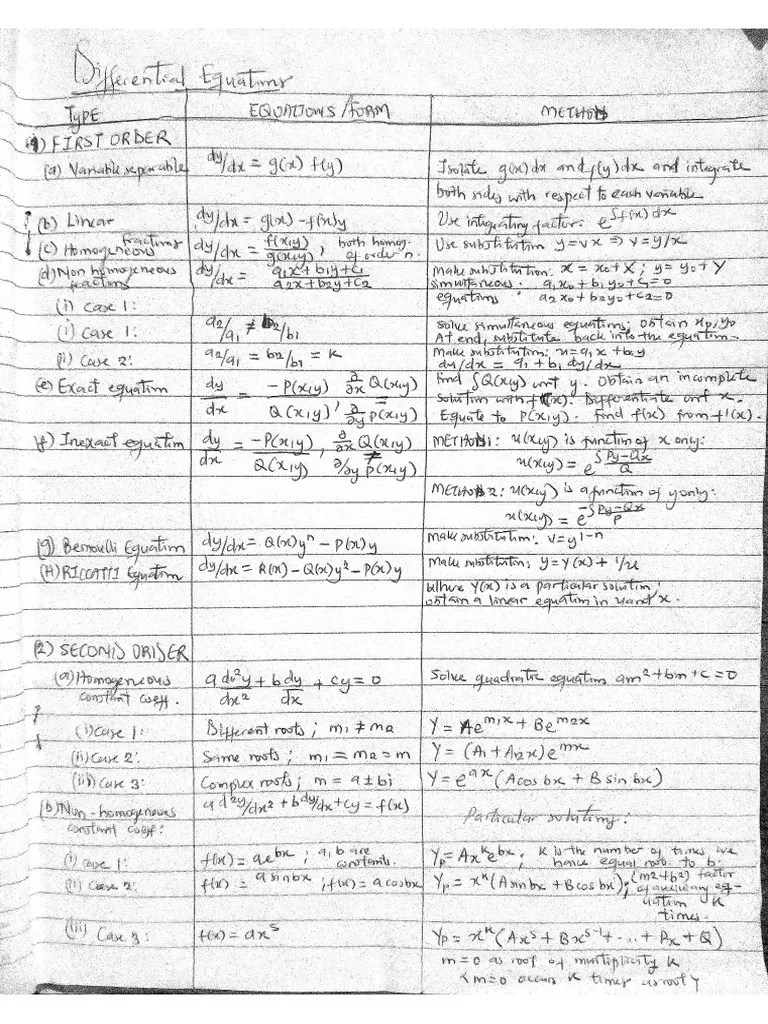 Differential Equations
TYPE EQUATIONS/FORM METHOD
(1) FIRST ORDER
(a) Variable separable dy/dx = g(x) f(y) Isolate g(x)dx and f(y)dx and integrate
both sides with respect to each variable
(b) Linear dy/dx = g(x) - f(x)y Use integrating factor: e^∫f(x)dx
(c) Homogeneous fractions dy/dx = f(x,y)/g(x,y), both homog. of order n. Use substitution y=vx ⇒ v=y/x
(d) Non homogeneous fractions dy/dx = a1x+b1y+c1/a2x+b2y+c2 Make substitution: x = x0+X; y=y0+Y
simultaneous: a1x0+b1y0+c1=0
equations: a2x0+b2y0+c2=0
(i) Case 1:
(i) Case 1: a2/a1 ≠ b2/b1 Solve simultaneous equations; Obtain x0,y0
At end, substitute back into the equation.
(ii) Case 2: a2/a1 = b2/b1 = k Make substitution: u=a1x+b1y
du/dx = a1+b1 dy/dx
(e) Exact equation dy/dx = -P(x,y)/Q(x,y), ∂/∂x Q(x,y) = ∂/∂y P(x,y) Find ∫Q(x,y) wrt y. Obtain an incomplete
solution with f(x). Differentiate wrt x.
Equate to P(x,y). Find f(x) from f'(x).
(f) Inexact equation dy/dx = -P(x,y)/Q(x,y), ∂/∂x Q(x,y) ≠ ∂/∂y P(x,y) METHOD 1: u(x,y) is function of x only:
u(x,y) = e^∫Py-Qx/Q
METHOD 2: u(x,y) is a function of y only:
u(x,y) = e^-∫Py-Qx/P
(g) Bernoulli Equation dy/dx = Q(x)y^n - P(x)y Make substitution: v=y^1-n
(H) RICCATTI Equation dy/dx = R(x) - Q(x)y^2 - P(x)y Make substitution: y=Y(x)+1/u
Where Y(x) is a particular solution;
obtain a linear equation in u and x.
(2) SECOND ORDER
(a) Homogeneous a d^2y/dx^2 + b dy/dx + cy = 0 Solve quadratic equation am^2+bm+c=0
constant coeff.
(i) Case 1: Different roots; m1 ≠ m2 Y = Ae^m1x + Be^m2x
(ii) Case 2: Same roots; m1 = m2 = m Y = (A1 + A2x)e^mx
(iii) Case 3: Complex roots; m = a ± bi Y = e^ax (A cos bx + B sin bx)
(b) Non-homogenous a d^2y/dx^2 + b dy/dx + cy = f(x) Particular solutions:
constant coeff:
(i) Case 1: f(x) = ae^bx; a,b are constants. Yp = Ax^k e^bx; k is the number of times we
have equal root to b.
(ii) Case 2: f(x) = a sin bx; f(x) = a cos bx Yp = x^k (A sin bx + B cos bx); (m^2+b^2) factor
of auxiliary eq-
uation k
times.
(iii) Case 3: f(x) = ax^s Yp = x^k (Ax^s + Bx^s-1 + ... + Px + Q)
m=0 as root of multiplicity k
m=0 occurs k times as root